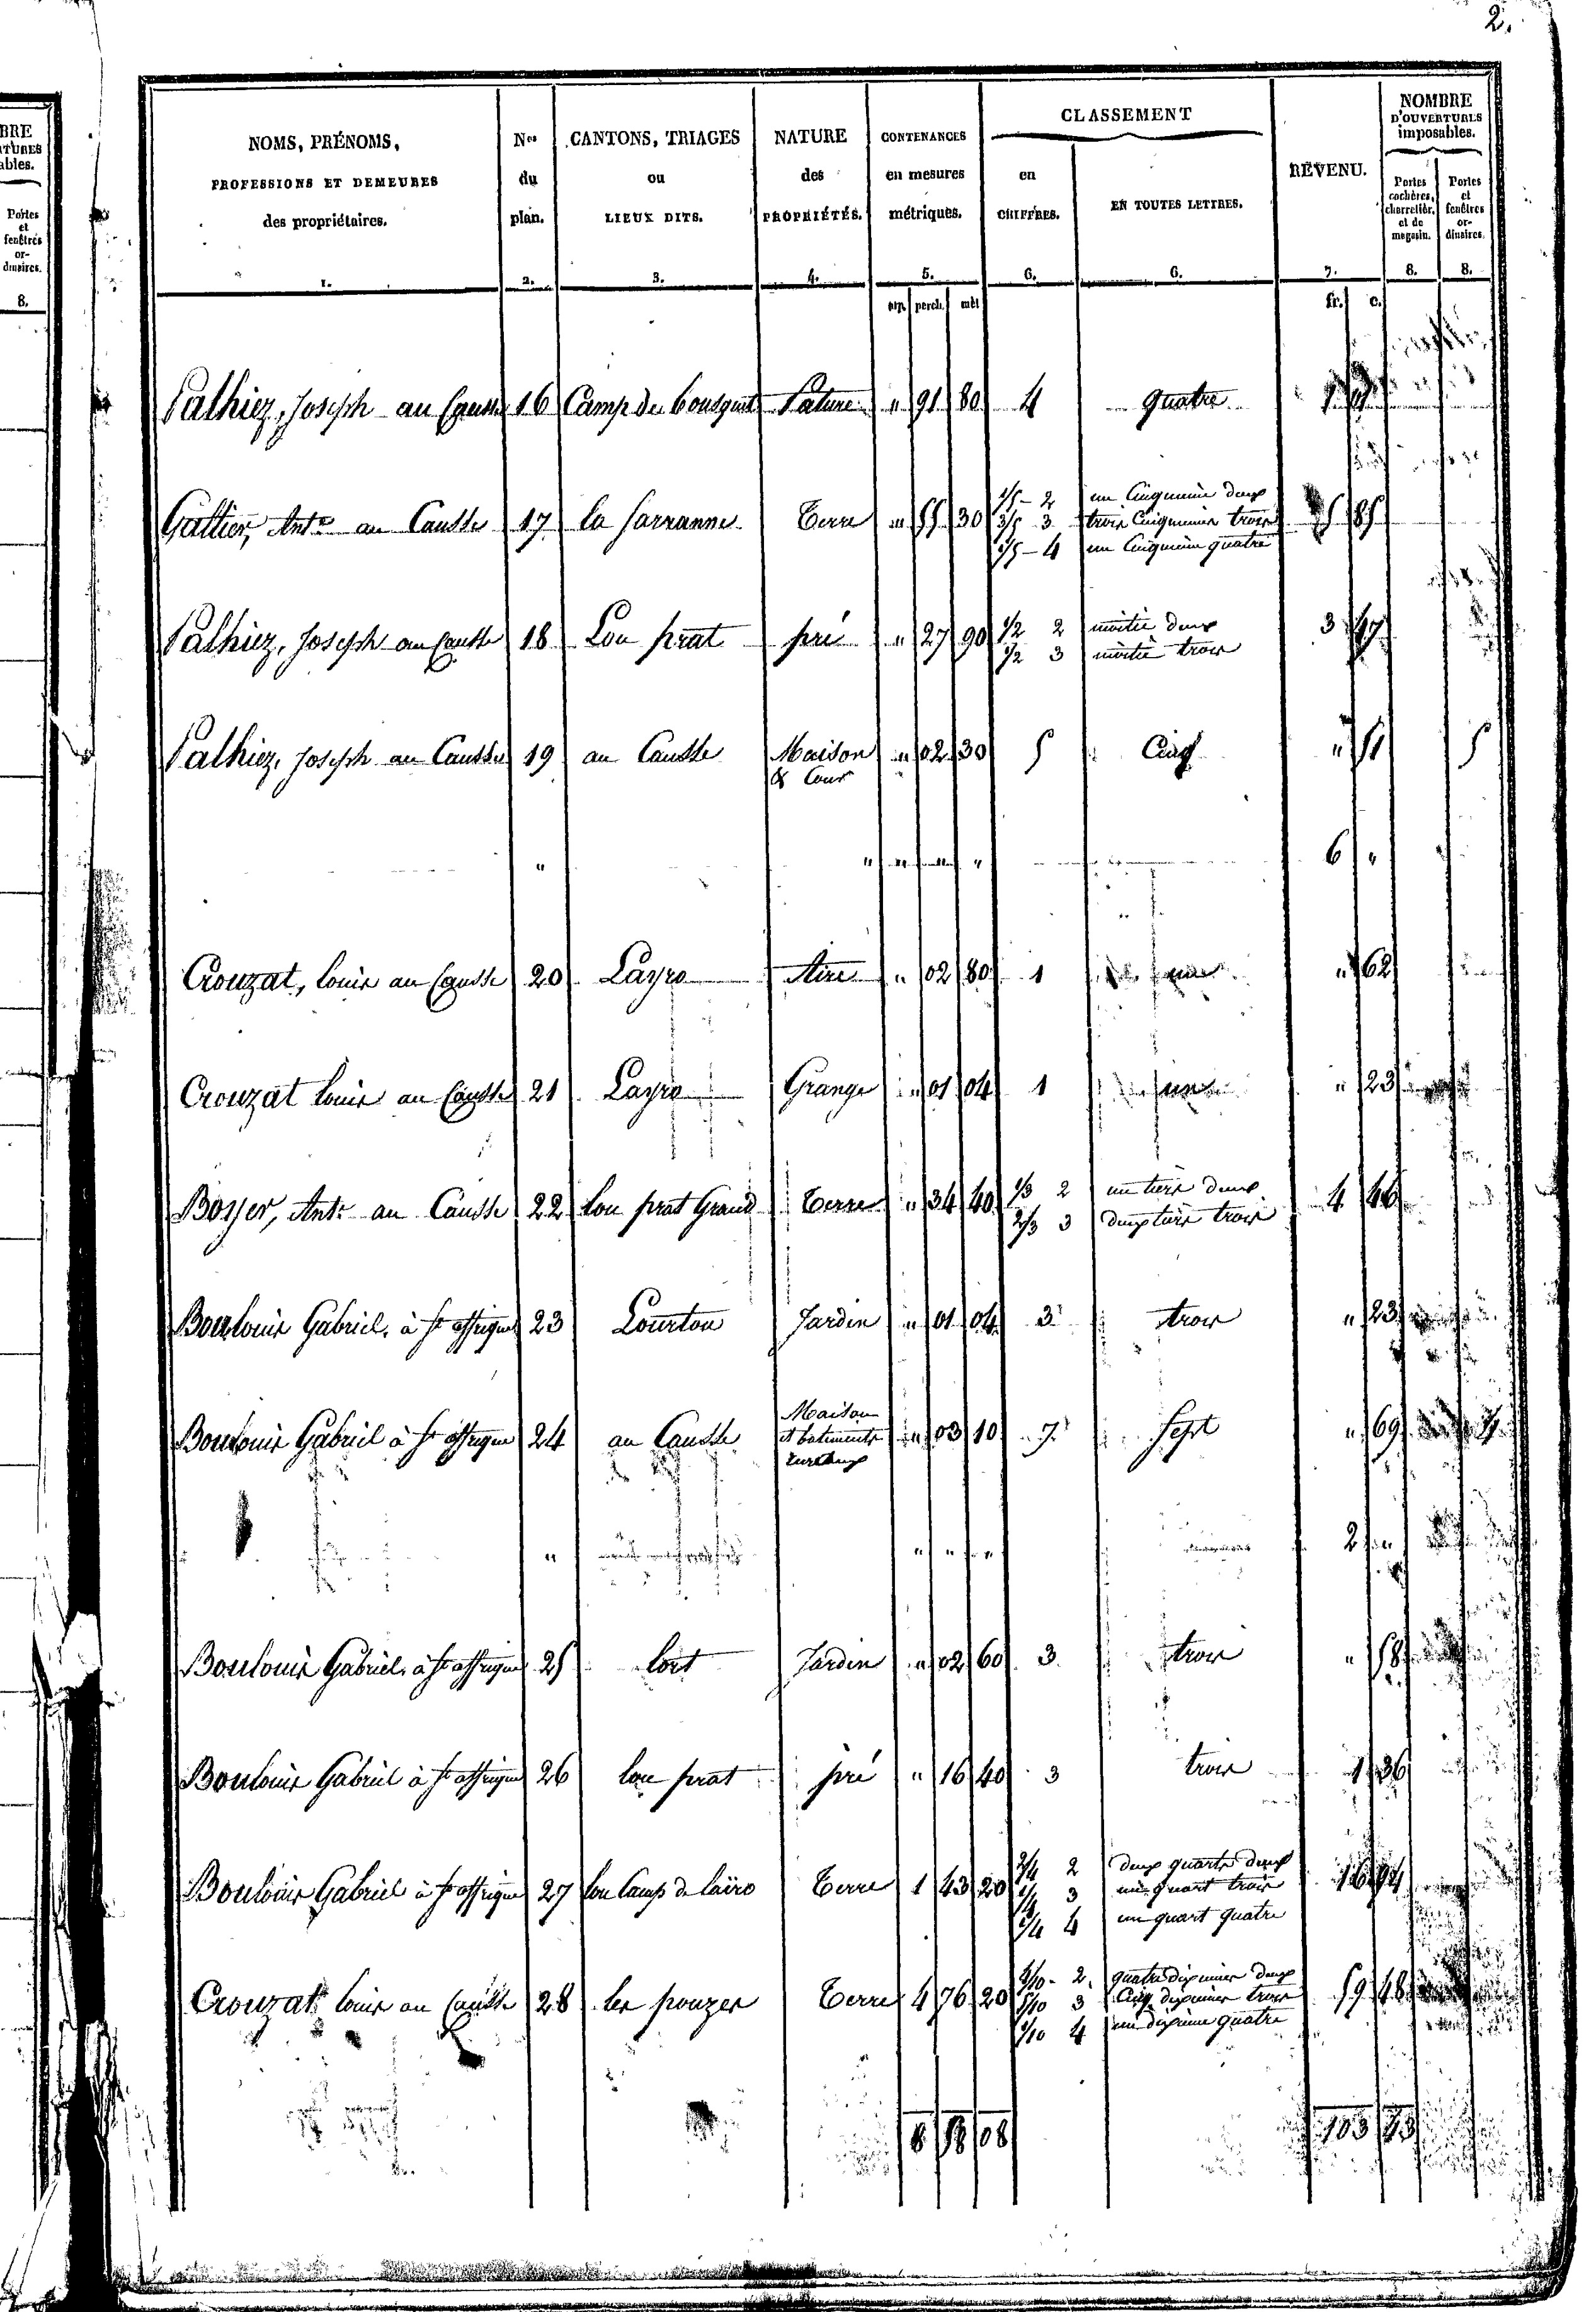 2.
NOMS, PRÉNOMS, PROFESSIONS ET DEMEURES des propriétaires. 1.
Nos du plan. 2.
CANTONS, TRIAGES ou LIEUX DITS. 3.
NATURE des PROPRIÉTÉS. 4.
CONTENANCES en mesures métriques. 5.
CLASSEMENT
en CHIFFRES. 6.
EN TOUTES LETTRES. 6.
REVENU. 7.
NOMBRE D'OUVERTURES imposables.
Portes cochères, charretièr. et de magasin. 8.
Portes et fenêtres ordinaires. 8.
arp. perch. mèt fr. c.
Palhiez, Joseph au Causse 16 Camp du bousquet Pature " 91 80 4 quatre
Galtier, Ant.e au Causse 17 la sarranne Terre " 55 30 1/5 - 2 un Cinquieme deux 5 85
3/5 3 trois Cinquieme trois
1/5 - 4 un Cinquieme quatre
Palhiez, Joseph au Causse 18 Lou prat pré " 27 90 1/2 2 moitié deux 3 47
1/2 3 moitié trois
Palhiez, Joseph au Causse 19 au Causse Maison " 02 30 5 Cinq " 51 5
& Cour
" " " " " 6 "
Crouzat, louis au Causse 20 Layro Aire " 02 80 1 une " 62
Crouzat louis au Causse 21 Layro Grange " 01 04 1 une " 23
Boyer, Ant.e au Causse 22 lou prat Grand Terre " 34 40 1/3 2 un tiers deux 4 46
2/3 3 deux tiers trois
Boulouis Gabriel, à St affrique 23 Lourtou Jardin " 01 04 3 trois " 23
Boulouis Gabriel à St affrique 24 au Causse Maison et batiments ruraux " 03 10 7 Sept " 69
" " " " 2 "
Boulouis Gabriel, à St affrique 25 lort Jardin " 02 60 3 trois " 58
Boulouis Gabriel à St affrique 26 lou prat pré " 16 40 3 trois 1 36
Boulouis Gabriel à St affrique 27 lou Camp de laïro Terre 1 43 20 2/4 2 deux quarts deux 16 94
1/4 3 un quart trois
1/4 4 un quart quatre
Crouzat louis au Causse 28 les pouzes Terre 4 76 20 4/10 - 2 quatre dixieme deux 59 48
5/10 3 Cinq dixieme trois
1/10 4 un dixieme quatre
8 58 08 103
BRE
TURES
ables.
Portes et fenêtres ordinaires.
8.